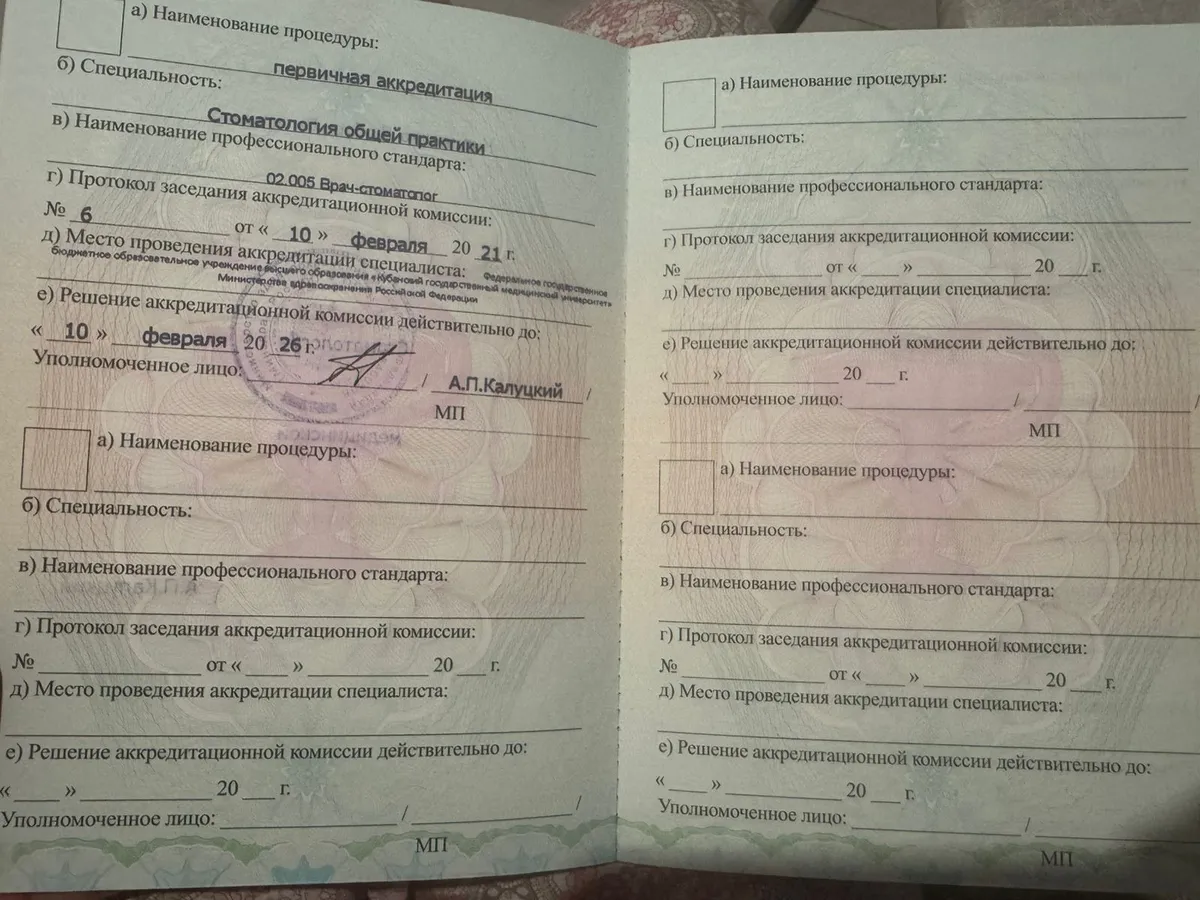 а) Наименование процедуры:
первичная аккредитация
б) Специальность:
Стоматология общей практики
в) Наименование профессионального стандарта:
02.005 Врач-стоматолог
г) Протокол заседания аккредитационной комиссии:
№ 6 от « 10 » февраля 20 21 г.
д) Место проведения аккредитации специалиста: Федеральное государственное
бюджетное образовательное учреждение высшего образования «Кубанский государственный медицинский университет»
Министерства здравоохранения Российской Федерации
е) Решение аккредитационной комиссии действительно до:
« 10 » февраля 20 26 г.
Уполномоченное лицо: / А.П.Калуцкий /
МП
а) Наименование процедуры:
б) Специальность:
в) Наименование профессионального стандарта:
г) Протокол заседания аккредитационной комиссии:
№ от « » 20 г.
д) Место проведения аккредитации специалиста:
е) Решение аккредитационной комиссии действительно до:
« » 20 г.
Уполномоченное лицо: / /
МП
а) Наименование процедуры:
б) Специальность:
в) Наименование профессионального стандарта:
г) Протокол заседания аккредитационной комиссии:
№ от « » 20 г.
д) Место проведения аккредитации специалиста:
е) Решение аккредитационной комиссии действительно до:
« » 20 г.
Уполномоченное лицо: / /
МП
а) Наименование процедуры:
б) Специальность:
в) Наименование профессионального стандарта:
г) Протокол заседания аккредитационной комиссии:
№ от « » 20 г.
д) Место проведения аккредитации специалиста:
е) Решение аккредитационной комиссии действительно до:
« » 20 г.
Уполномоченное лицо: /
МП